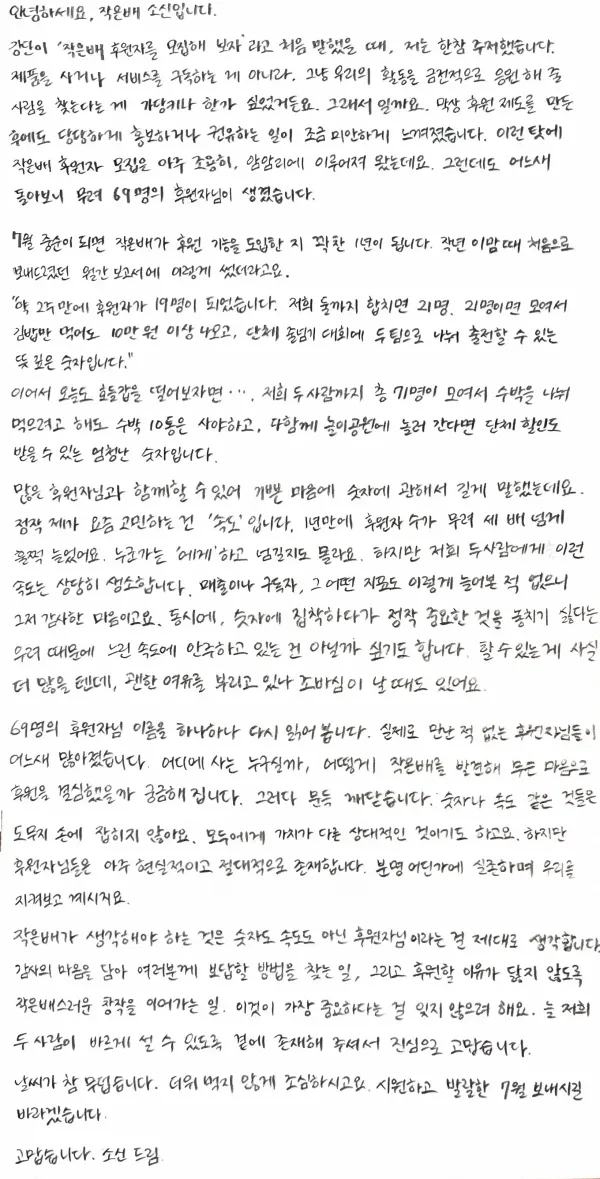 안녕하세요, 작은배 소신입니다.
강단이 '작은배 후원자를 모집해 보자' 라고 처음 말했을 때, 저는 한참 주저했습니다.
제품을 사거나 서비스를 구독하는 게 아니라. 그냥 우리의 활동을 금전적으로 응원해 줄
사람을 찾는다는 게 가당키나 한가 싶었거든요. 그래서 일까요. 막상 후원 제도를 만든
후에도 당당하게 홍보하거나 권유하는 일이 조금 미안하게 느껴졌습니다. 이런 탓에
작은배 후원자 모집은 아주 조용히, 암암리에 이루어져 왔는데요. 그런데도 어느새
돌아보니 무려 69명의 후원자님이 생겼습니다.
7월 중순이 되면 작은배가 후원 기능을 도입한 지 꽉 찬 1년이 됩니다. 작년 이맘때 처음으로
보내드렸던 월간 보고서에 이렇게 썼더라고요.
"약 2주 만에 후원자가 19명이 되었습니다. 저희 둘까지 합치면 21명. 21명이면 모여서
김밥만 먹어도 10만 원 이상 나오고, 단체 줄넘기 대회에 두 팀으로 나눠 출전할 수 있는
뜻 깊은 숫자입니다."
이어서 오늘도 호들갑을 떨어보자면…. 저희 두 사람까지 총 71명이 모여서 수박을 나눠
먹으려고 해도 수박 10통은 사야하고, 다함께 놀이공원에 놀러 간다면 단체 할인도
받을 수 있는 엄청난 숫자입니다.
많은 후원자님과 함께할 수 있어 기쁜 마음에 숫자에 관해서 길게 말했는데요.
정작 제가 요즘 고민하는 건 '속도'입니다. 1년만에 후원자 수가 무려 세 배 넘게
훌쩍 늘었어요. 누군가는 '에게' 하고 넘길지도 몰라요. 하지만 저희 두사람에게 이런
속도는 상당히 생소합니다. 매출이나 구독자, 그 어떤 지표도 이렇게 늘어본 적 없으니
그저 감사한 마음이고요. 동시에, 숫자에 집착하다가 정작 중요한 것을 놓치기 싫다는
우려 때문에 느린 속도에 안주하고 있는 건 아닐까 싶기도 합니다. 할 수 있는 게 사실
더 많을 텐데, 괜한 여유를 부리고 있나 조바심이 날 때도 있어요.
69명의 후원자님 이름을 하나하나 다시 읽어 봅니다. 실제로 만난 적 없는 후원자님들이
어느새 많아졌습니다. 어디에 사는 누구실까, 어떻게 작은배를 발견해 무슨 마음으로
후원을 결심했을까 궁금해집니다. 그러다 문득 깨닫습니다. 숫자나 속도 같은 것들은
도무지 손에 잡히지 않아요. 모두에게 가치가 다른 상대적인 것이기도 하고요. 하지만
후원자님들은 아주 현실적이고 절대적으로 존재합니다. 분명 어딘가에 실존하며 우리를
지켜보고 계시지요.
작은배가 생각해야 하는 것은 숫자도 속도도 아닌 후원자님이라는 걸 제대로 생각합니다.
감사의 마음을 담아 여러분께 보답할 방법을 찾는 일, 그리고 후원할 이유가 닳지 않도록
작은배스러운 창작을 이어가는 일. 이것이 가장 중요하다는 걸 잊지 않으려 해요. 늘 저희
두 사람이 바르게 설 수 있도록 곁에 존재해 주셔서 진심으로 고맙습니다.
날씨가 참 무덥습니다. 더위 먹지 않게 조심하시고요. 시원하고 발랄한 7월 보내시길
바라겠습니다.
고맙습니다. 소신 드림.